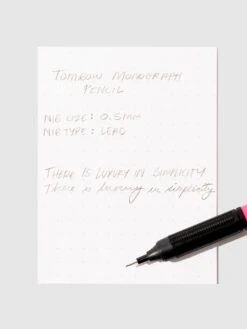 TOMBOW MONOGRAPH
PENCIL
NIB SIZE: 0.5MM
NIB TYPE: LEAD
THERE IS LUXURY IN SIMPLICITY
There is luxury in simplicity